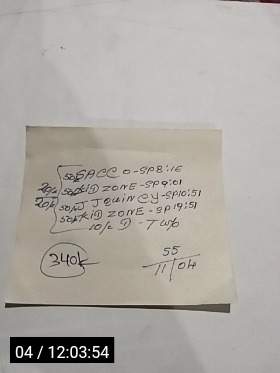 50k SACCO-SP8:16
20k 50k KID ZONE-SP9:01
20k 50k JJQUINCY-SP10:51
50k KID ZONE-SP19:51
10k D-Two
340k
55
11/04
04 / 12:03:54